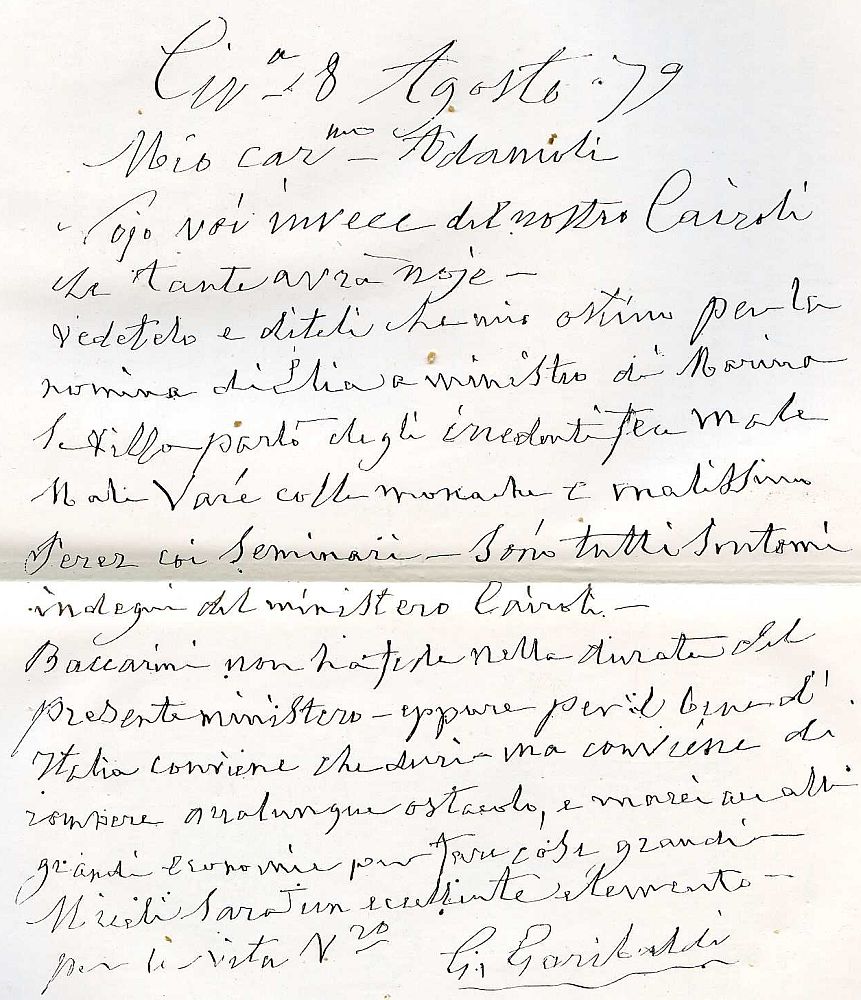 Civ.a 8 Agosto 79
Mio car.mo Adamoli
voi invece del nostro Cairoli
che tante avrà noje –
vedetelo e diteli che mio ostino per la
nomina di Elia a ministro di Marina
Se Villa parlò degli irredenti fece male
Male Varé colle monache e malissimo
Perez coi Seminari – Sono tutti Sintomi
indegni del ministero Cairoli. –
Baccarini non ha fede nella durata del
presente ministero – eppure per il bene d'
Italia conviene che duri – ma conviene di
rompere qualunque ostacolo, e
grandi economie per fare cose grandi –
Miceli Sarà un eccellente elemento –
per la vita V.ro G. Garibaldi